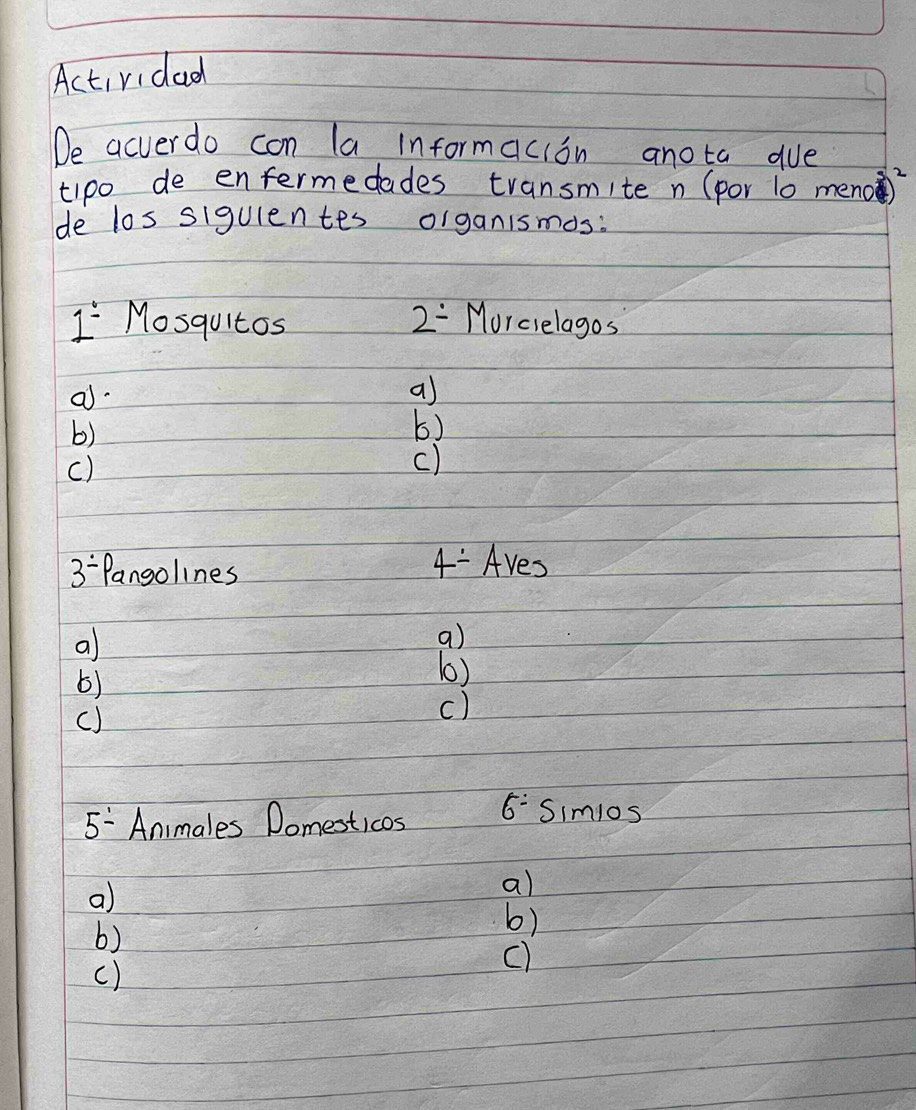 Actividad
De acuerdo con la información anota que
tipo de enfermedades transmiten (por lo menos)²
de los siguientes organismos:
1÷ Mosquitos 2÷ Murcielagos
a). a)
b) b)
c) c)
3÷ Pangolines 4÷ Aves
a) a)
b) b)
c) c)
5÷ Animales Domesticos 6÷ Simios
a) a)
b) b)
c) c)